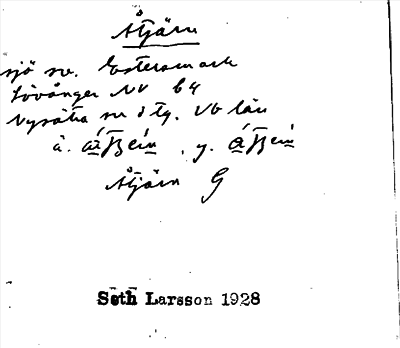 Åtjärn
sjö sv. Estersmark
Lövånger NV 64
Nysätra sn d tg. Vb län
å. , y.
Åtjärn G
Seth Larsson 1928